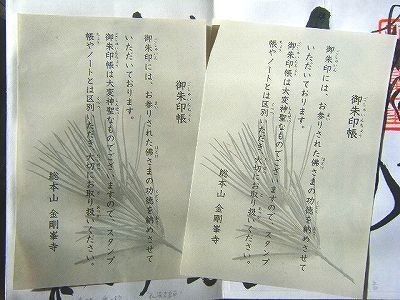 御朱印帳
御朱印には、お参りされた佛さまの功徳を納めさせて
いただいております。
御朱印帳は大変神聖なものでございますので、スタンプ
帳やノートとは区別いただき、大切にお取り扱いください。
総本山 金剛峯寺
御朱印帳
御朱印には、お参りされた佛さまの功徳を納めさせて
いただいております。
御朱印帳は大変神聖なものでございますので、スタンプ
帳やノートとは区別いただき、大切にお取り扱いください。
総本山 金剛峯寺